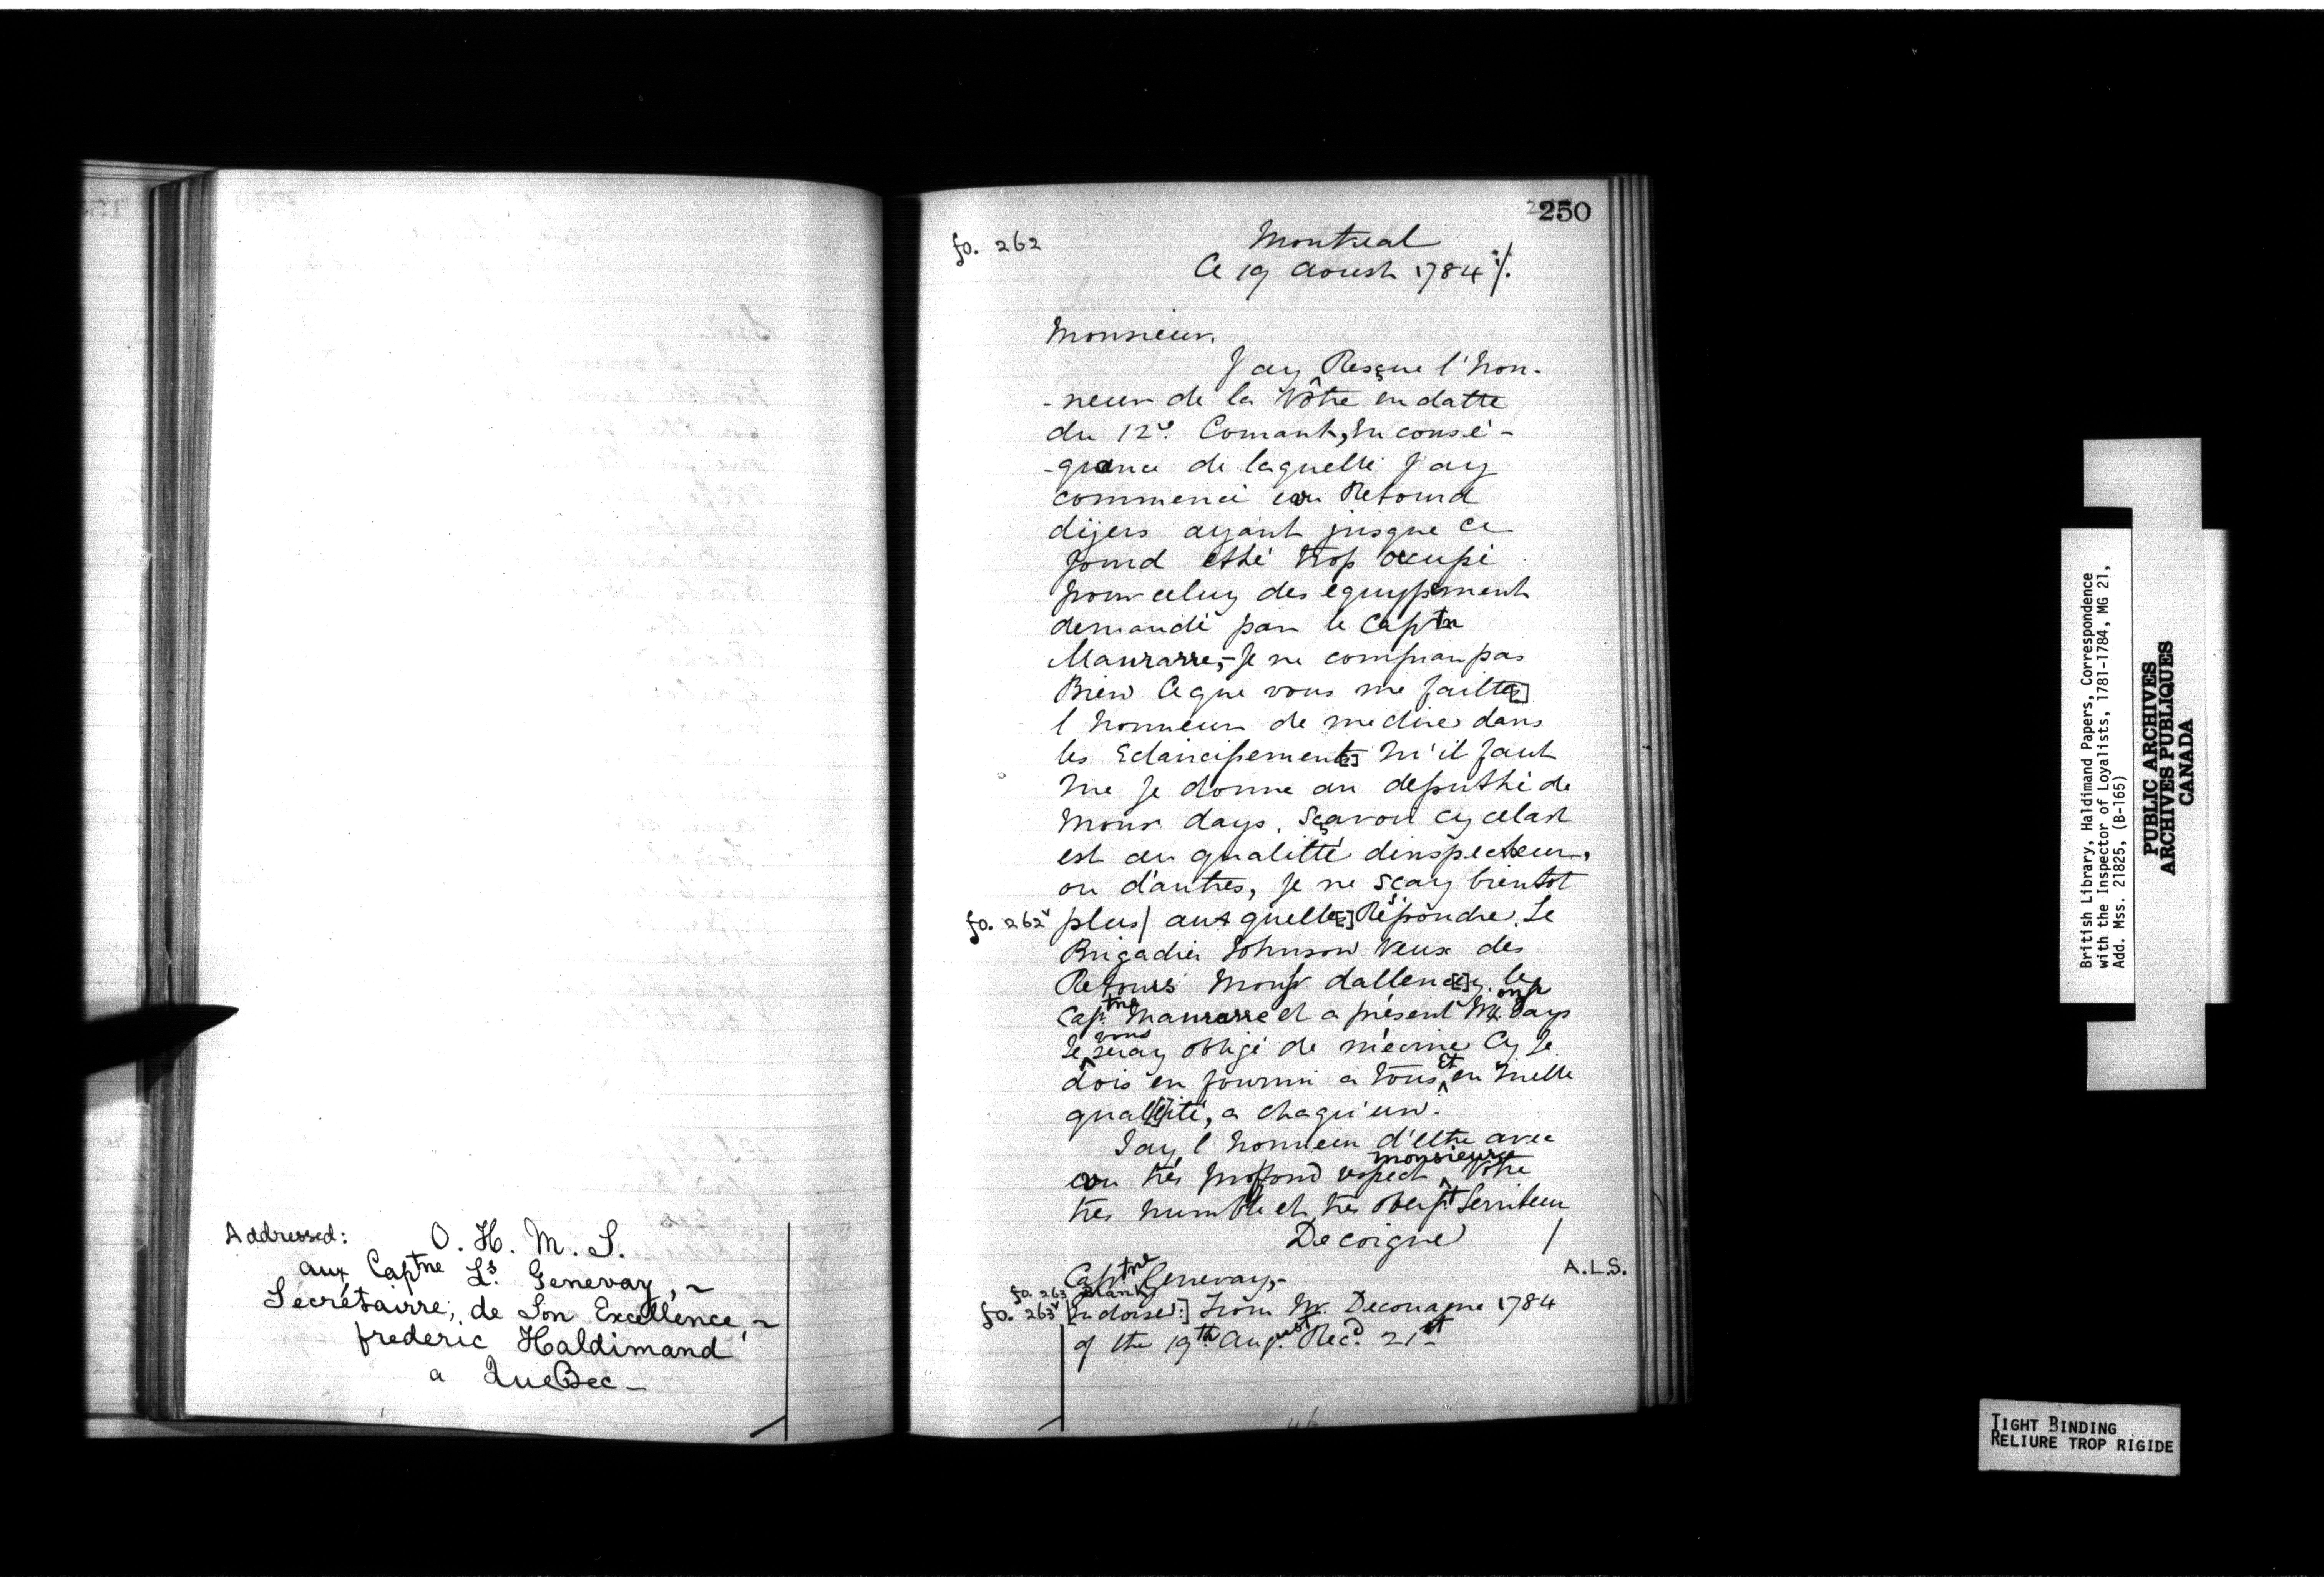 Addressed: O. H. M. S.
aux Captne Ls. Genevay, ~
Secrétairre, de Son Excellence, ~
frederic Haldimand
a QueBec -
250
fo. 262
Montreal
Ce 19 Aoust 1784 %.
Monsieur.
Jay Resçue l'hon-
-neur de la Vôtre en datte
du 12e. Courant, en conse-
-quance de laquelle Jay
commencé un Retourd
dijers ayant jusque ce
Jourd etté trop occupé
pour celuy des equypement
demandé par le Captn
Maurarre, - Je ne compran pas
Bien Ceque vous me faitte[s]
l honneur de me dire dans
les Eclaircissement[s] qu'il faut
que Je donne au deputhé de
Monsr days, Sçavoir cy celast
est en qualitté dinspecteur,
ou d'autres, Je ne sçay bientot
fo. 262v plus/ aux quelle[s] Répondre. Le
Brigadier Johnson veux des
Retours Monsr dallen[ce]y. le
Captne Maurarre et a présent Monsr Days
Je vous seray obligé de mécrire Cy Je
dois en fourni a tous Et en quelle
qual[l]ité, a chaqu'un.
Jay l honneur d'estre avec
un tres proffond respect monsieur Vôtre
tres humble et tres obeist Serviteur
Decoigne /
A.L.S.
Captne Genevay, -
fo. 263 blank
fo. 263v [Endorsed:] From Mr. Decouagne 1784
of the 19th August Recd. 21st
British Library, Haldimand Papers, Correspondence
with the Inspector of Loyalists, 1781-1784, MG 21,
Add. Mss. 21825, (B-165)
PUBLIC ARCHIVES
ARCHIVES PUBLIQUES
CANADA
TIGHT BINDING
RELIURE TROP RIGIDE